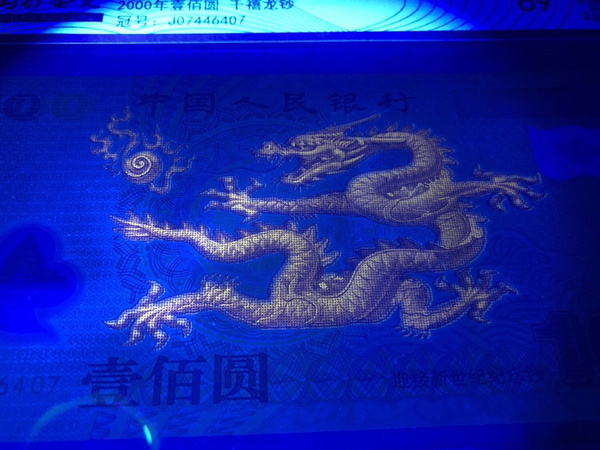 2000年壹佰圆 千禧龙钞
冠号: J07446407
69
中国人民银行
6407
壹佰圆
迎接新世纪纪念钞